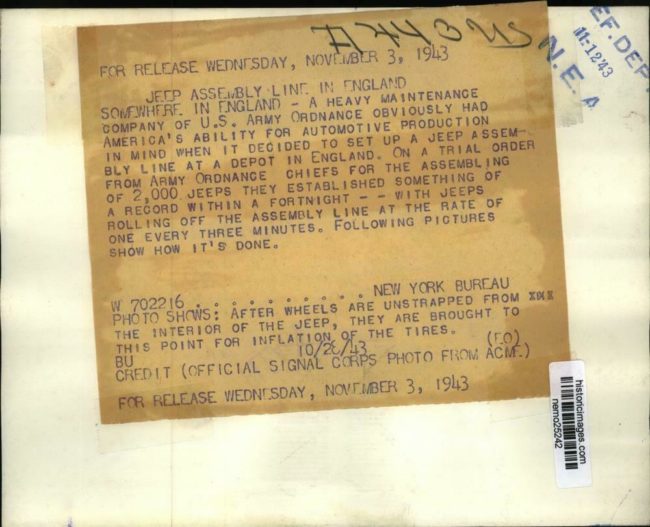 A443US
EF. DEP
11:1243
N. E. A
FOR RELEASE WEDNESDAY, NOVEMBER 3, 1943
JEEP ASSEMBLY LINE IN ENGLAND
SOMEWHERE IN ENGLAND - A HEAVY MAINTENANCE
COMPANY OF U.S. ARMY ORDNANCE OBVIOUSLY HAD
AMERICA'S ABILITY FOR AUTOMOTIVE PRODUCTION
IN MIND WHEN IT DECIDED TO SET UP A JEEP ASSEM-
BLY LINE AT A DEPOT IN ENGLAND. ON A TRIAL ORDER
FROM ARMY ORDNANCE CHIEFS FOR THE ASSEMBLING
OF 2,000 JEEPS THEY ESTABLISHED SOMETHING OF
A RECORD WITHIN A FORTNIGHT -- WITH JEEPS
ROLLING OFF THE ASSEMBLY LINE AT THE RATE OF
ONE EVERY THREE MINUTES. FOLLOWING PICTURES
SHOW HOW IT'S DONE.
W 702216 . . . . . . . . . . NEW YORK BUREAU
PHOTO SHOWS: AFTER WHEELS ARE UNSTRAPPED FROM
THE INTERIOR OF THE JEEP, THEY ARE BROUGHT TO
THIS POINT FOR INFLATION OF THE TIRES.
BU 10/28/43 (EO)
CREDIT (OFFICIAL SIGNAL CORPS PHOTO FROM ACME)
FOR RELEASE WEDNESDAY, NOVEMBER 3, 1943
historicimages.com
nemo25242